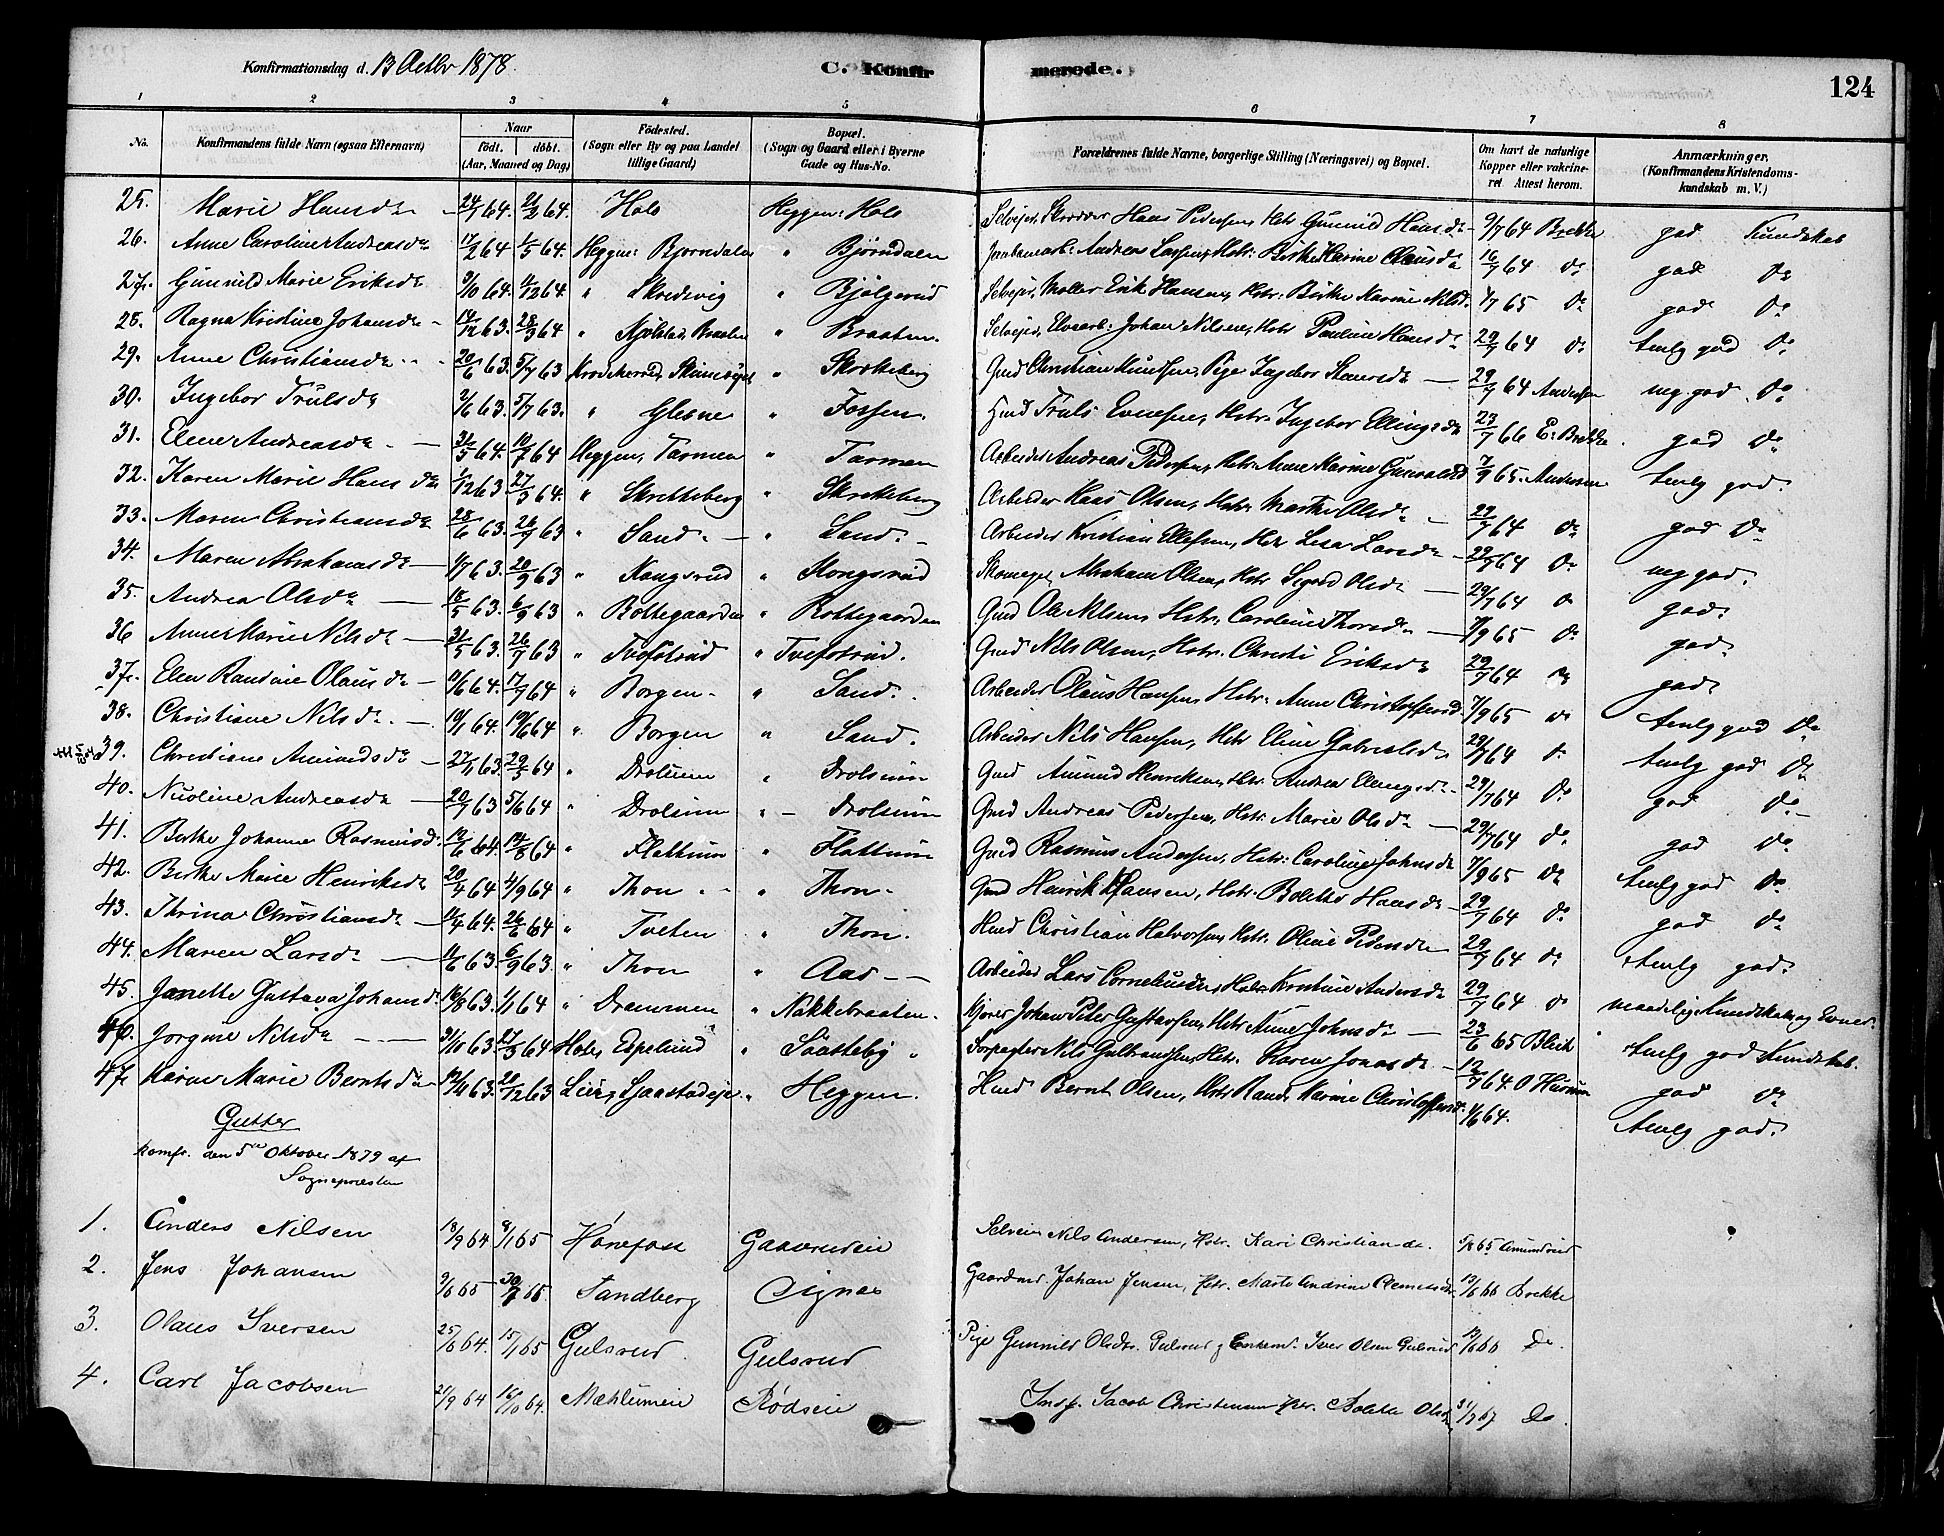 Konfirmationsdag d. 13 Octbr 1878. C. Konfirmerede. 124
1 2 3 4 5 6 7 8
No. Konfirmandens fulde Navn (ogsaa Efternavn) Naar födt. döbt. (Aar, Maaned og Dag) Födested. (Sogn eller By og paa Landet tillige Gaard) Bopæl. (Sogn og Gaard eller i Byerne Gade og Hus-No. Forældrenes fulde Navne, borgerlige Stilling (Næringsvei) og Bopæl. Om havt de naturlige Kopper eller vakcineret Attest herom. Anmærkninger. (Konfirmandens Kristendomskundskab m. V.)
25. Marie Hansdr 24/7 64. 21/2 64. Hole Heggen: Hole Selveier, Skrædder Hans Pedersen, Hstr. Gunnild Hansdr 9/7 64 Brekke god Kundskab
26. Anne Caroline Andreasdr 17/2 64 1/5 64. Heggen: Bjørndalen " Bjørndalen Jernbanearb: Andreas Larsen, Hstr: Birthe Karine Clausdr 16/7 64 do god do
27. Gunnild Marie Eriksdr 9/10 64. 11/12 64. " Skredsvig " Bjölgerud Selveier, Møller Erik Hansen, Hstr: Birthe Karine Nilsd. 4/7 65 do god do
28. Ragna Kristine Johansdr 14/12 63. 28/3 64 " Braaten " Braaten. Selveier, Elvearb: Johan Nilsen, Hstr Pauline Hansdr 29/7 64 do temlg god do
29. Anne Christiansdr 20/6 63. 5/7 63 Krödsherred, " Skretteberg Gmd Christian Knutsen, Pige Ingebor 29/7 64 Andersen meg god do
30. Ingebor Trulsdr 2/6 63. 5/7 63. " Glesne " Fossen. Hmd Truls Evensen, Hstr. Ingebor Ellingsdr 23/7 66 E: Brekke god do
31. Elene Andreasdr 31/5 64. 10/7 64 Heggen, Tarmen " Tarmen Arbeider Andreas Pedersen, Hstr: Anne Karine Gunvaldsd 7/9 65. Andersen temlg god.
32. Karen Marie Hansdr 1/12 63 27/3 64. " Skretteberg " Skretteberg Arbeider Hans Olsen, Hstr. Marthe Olsdr 29/7 64 do god do
33. Maren Christiansdr 28/6 63. 26/9 63 " Sand " Sand. Arbeider Kristian Ellefsen, Hstr Lisa Larsdr 29/7 64 do meg god.
34. Maren Abrahamsdr 1/7 63. 20/9 63 " Kongsrud " Kongsrud Skomager, Abraham Olsen, Hstr Sigrid Olsdr 29/7 64 do god.
35. Andrea Olsdr 18/5 63. 6/9 63 " Bottegaarden " Bottegaarden Gmd Ole Nilsen, Hstr. Caroline Thorsdr 7/9 65 do god.
36 Anne Marie Nilsdr 31/5 63. 26/7 63 " Tvefstrud " Tvefstrud. Gmd Nils Olsen, Hstr. Christi Eriksdr 29/7 64 do god.
37. Elen Randine Olausdr 11/6 64. 17/7 64 " Borgen " Sand. Arbeider Olaus Hansen, Hstr: Anne Christoffersd. 7/9 65 do temlg god do
38. Christiane Nilsdr. 10/1 64. 19/6 64 " Borgen " Sand. Arbeider Nils Hansen, Hstr Eline Gabrielsdr 29/7 64 do temlg god do
39. Christiane Amundsdr 27/11 63. 29/5 64 " Drolsum " Drolsum Gmd Amund Henriksen, Hstr. Andrea Ellingsdr 29/7 64 do god do
40. Nicoline Andreasdr 20/7 63 5/6 64 " Drolsum " Drolsum Gmd Andreas Pedersen, Hstr. Marie Olsdr 29/7 64 do god do
41. Birthe Johanne Rasmusdr. 19/6 64. 14/8 64 " Flattum " Flattum Gmd Rasmus Andersen, Hstr: Caroline Johnsdr 7/9 65 do temlg god do
42. Birthe Marie Henriksdr 20/4 64 4/9 64 " Thon " Thon. Gmd Henrik Hansen, Hstr. Bolette Hansdr 29/7 64 do god do
43. Thrina Christiansdr 11/4 64. 26/6 64 " Tveten " Thon. Hmd Christian Halvorsen, Hstr. Oline Pedersdr 29/7 64 do temlg god.
44. Maren Larsdr 11/6 63. 6/9 63. " Thon " Aas Arbeider Lars Corneliusen, Hstr Kristine Andersdr 29/7 64 do maadelig Kundskab og Evner.
45. Janette Gustava Johansdr 16/8 63. 1/1 64 " Drammen " Nakkebraaten. Kjører Johan Peter Gustavsen, Hstr. Anne Johnsdr 23/6 65 Blich temlg god Kundskab.
46. Jorgine Nilsdr 31/10 63. 27/3 64 Hole, Espelund " Saasteby " Forpagter Nils Gulbrandsen, Hstr. Karen Jonasdr 12/7 64. O Husum god do
47. Karen Marie Berntsdr 19/11 63. 21/12 63 Lier, " Heggen. Hmd Bernt Olsen, Hstr Randi Karine Christoffersd. 1/6 64. temlg god.
Gutter
konfr. den 5te Oktober 1879 af
Sognepræsten
1. Anders Nilsen 18/9 64 8/1 65 Hönefoss Gaasrudeie Selveier Nils Andersen, Hstr. Kari Christiansdr. 5/8 65 Amundrud
2. Jens Johansen 9/6 65 30/7 65 Sandberg Gaardmd. Johan Jensen, Hstr. Marte Andrine 13/6 66 Brekke
3. Olaus Iversen 25/6 64. 15/1 65 Gulsrud. Gulsrud Pige Gunnild Olsdtr. Gulsrud og Enkemd. Iver Olsen Gulsrud 13/6 66 Do.
4. Carl Jacobsen 21/9 64 16/10 64. Mæhlumeie Rödseie Indf. Jacob Christensen Hstr. Bolette Olsdr 31/7 67 Do.